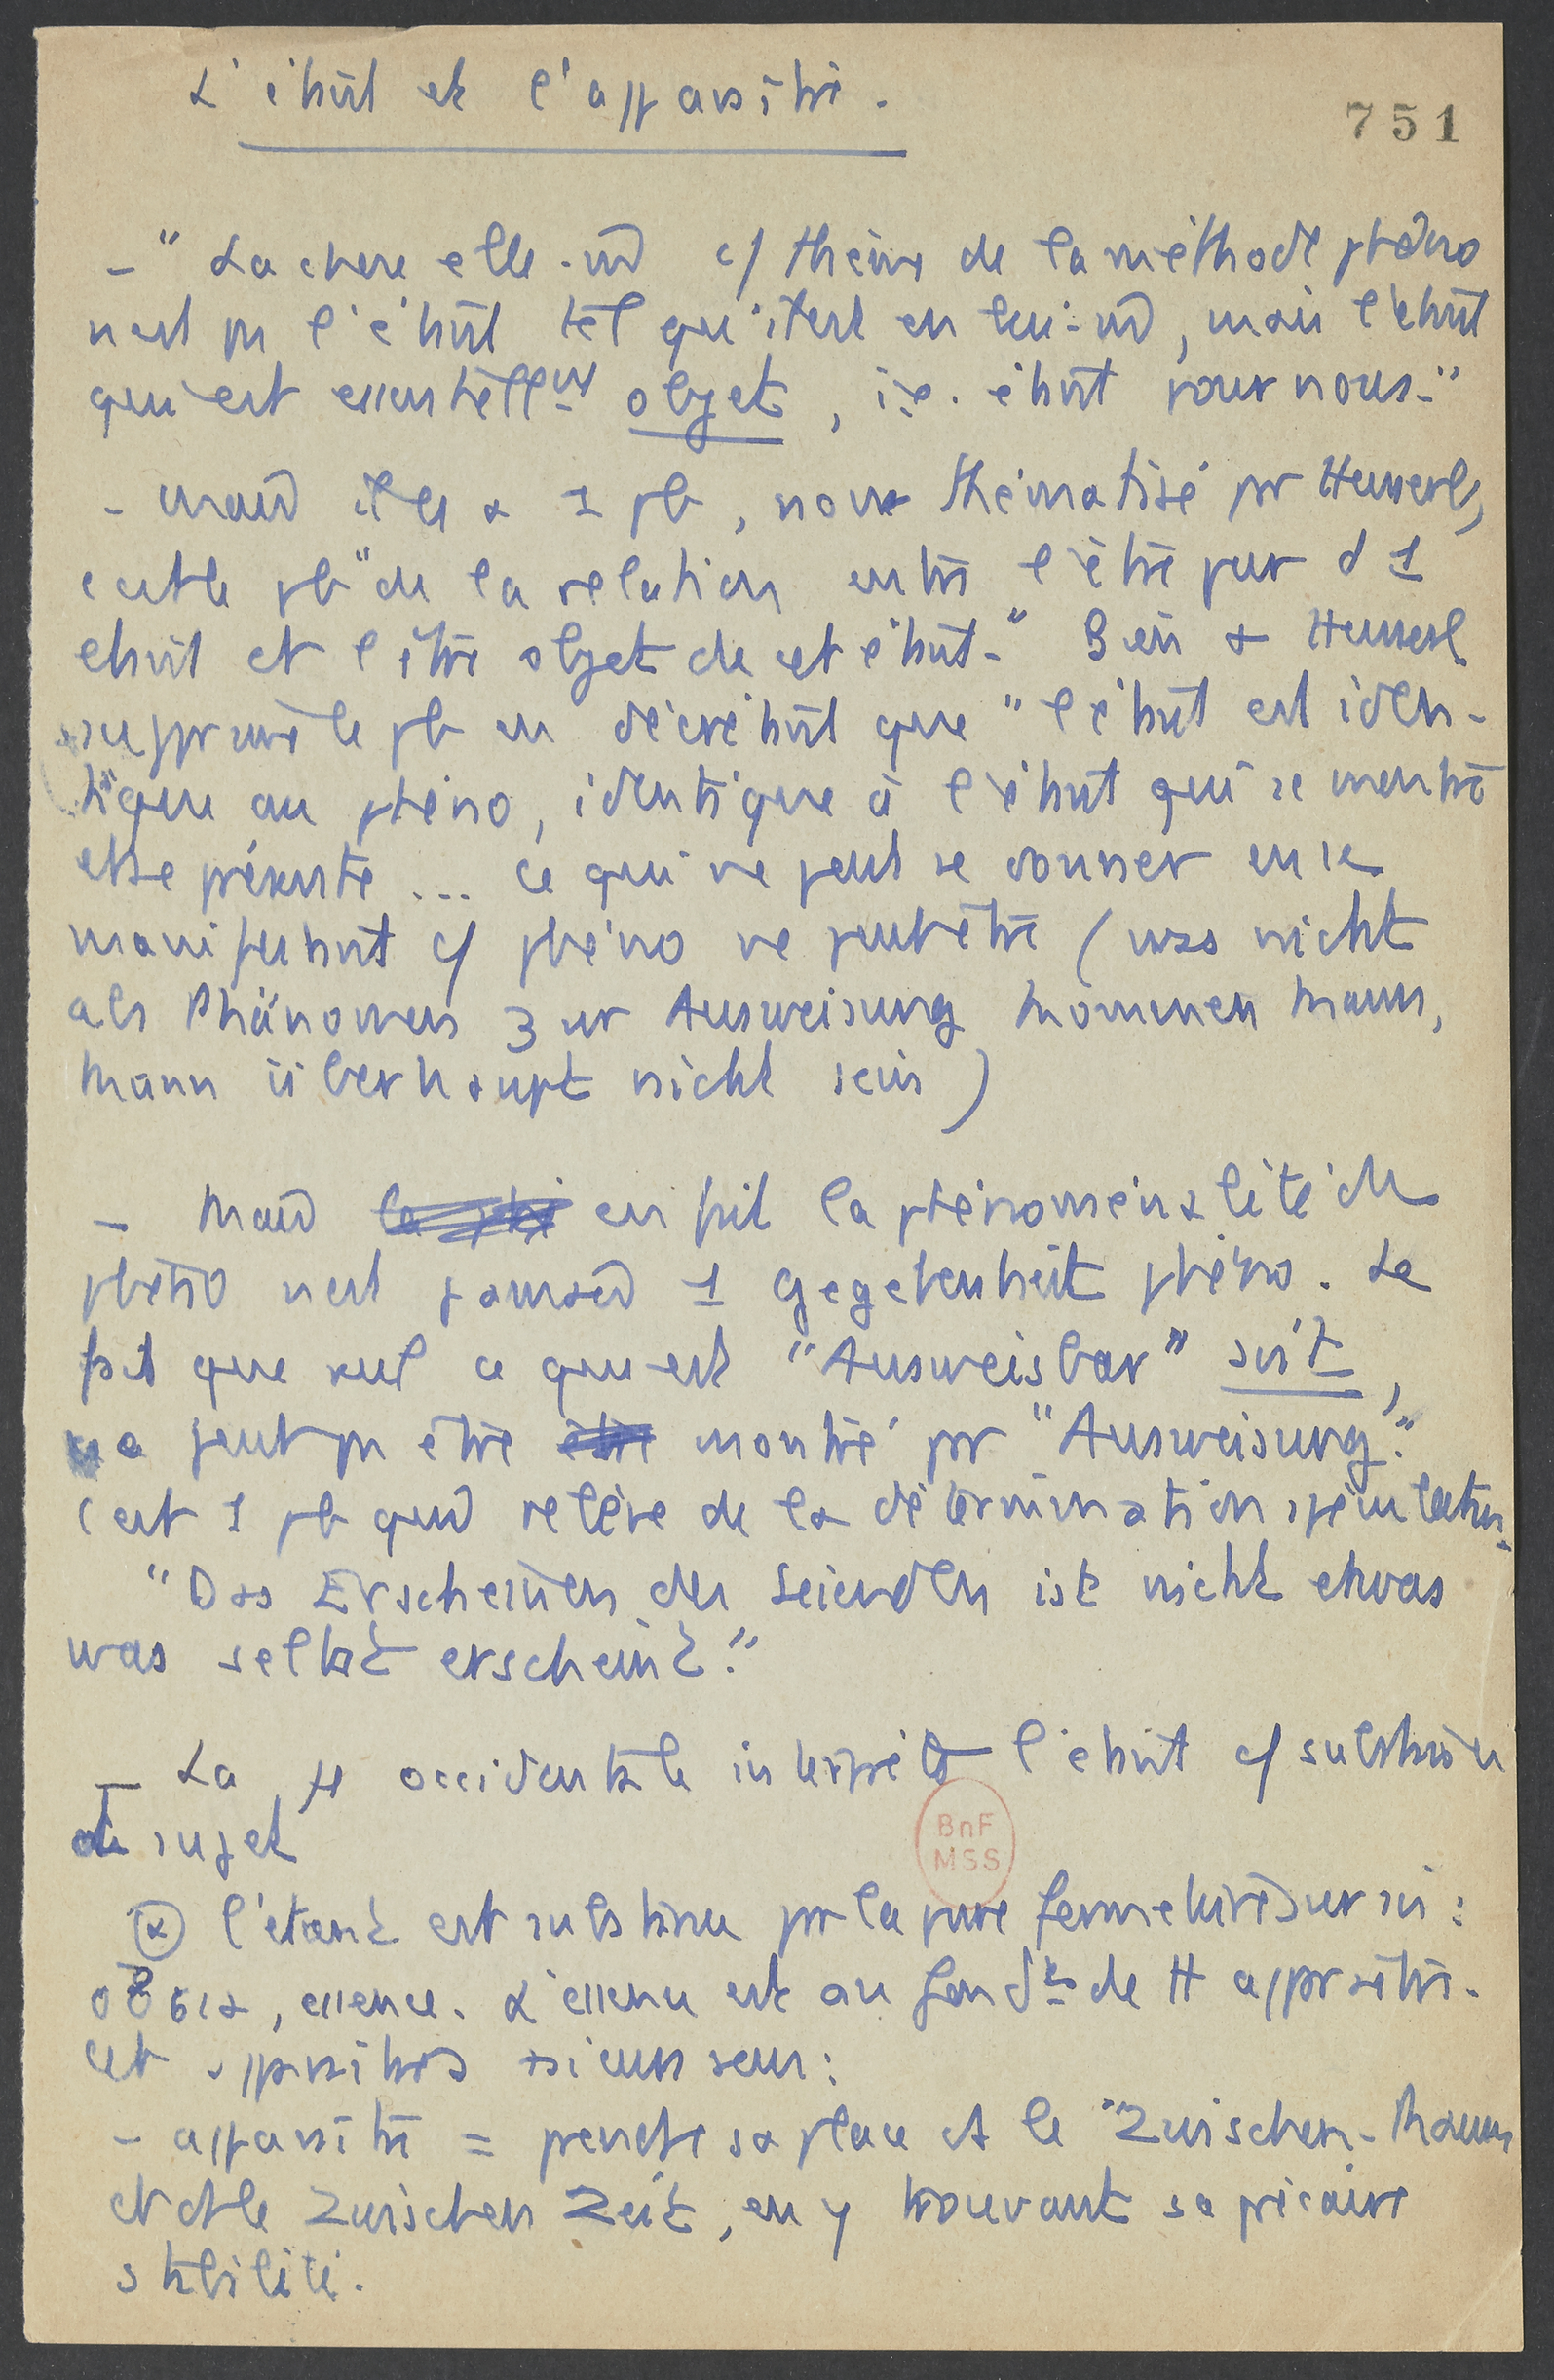 L'étant et l'apparaître.
751
- "La chose elle-m̂ c/ thème de la méthode phéno
n'est pas l'étant tel qu'il est en lui-m̂, mais l'étant
qui est essentiellt objet, i.e. étant pour nous."
- mais il y a 1 pb, non thématisé par Husserl,
c'est le pb "de la relation entre l'être pur d'1
étant et l'être objet de cet étant." Bien + Husserl
supprime le pb en décrétant que "l'étant est iden-
tique au phéno, identique à l'étant qui se montre
et se présente ... ce qui ne peut se donner en se
manifestant c/ phéno ne peut être (was nicht
als Phänomen zur Ausweisung kommen kann,
kann überhaupt nicht sein)
- Mais en fait la phénoménalité du
phéno n'est jamais 1 Gegebenheit phéno. Le
fait que seul ce qui est "Ausweisbar" soit,
ne peut pas être être montré par "Ausweisung."
C'est 1 pb qui relève de la détermination spéculative.
"Das Erscheinen des Seienden ist nicht etwas
was selbst erscheint."
- La φ occidentale interprète l'étant c/ substance
et sujet
BnF
MSS
(α) l'étant est substance par la pure fermeture sur soi :
οὐσια, essence. L'essence est au fondt de tt apparaître.
Cet apparaître a plusieurs sens :
- apparaître = prendre sa place ds le "Zwischen-Raum
et ds le Zwischen Zeit, en y trouvant sa précaire
stabilité.